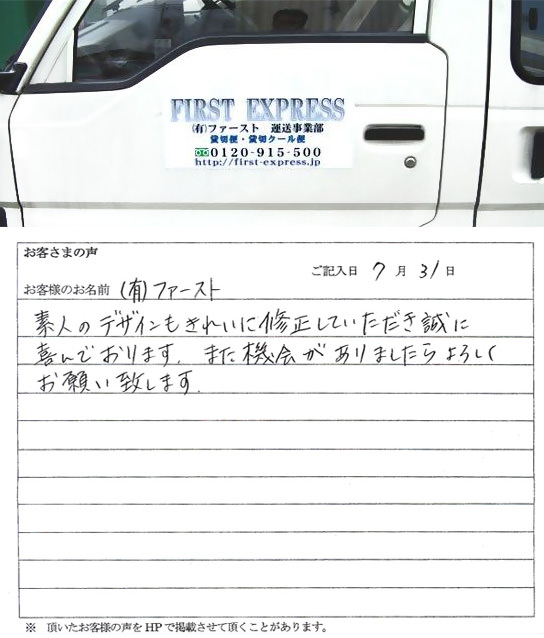 FIRST EXPRESS
(有)ファースト 運送事業部
貸切便・貸切クール便
0120-915-500
http://first-express.jp
お客さまの声
ご記入日 7月31日
お客様のお名前 (有)ファースト
素人のデザインもきれいに修正していただき誠に
喜んでおります。また機会がありましたらよろしく
お願い致します。
※ 頂いたお客様の声をHPで掲載させて頂くことがあります。